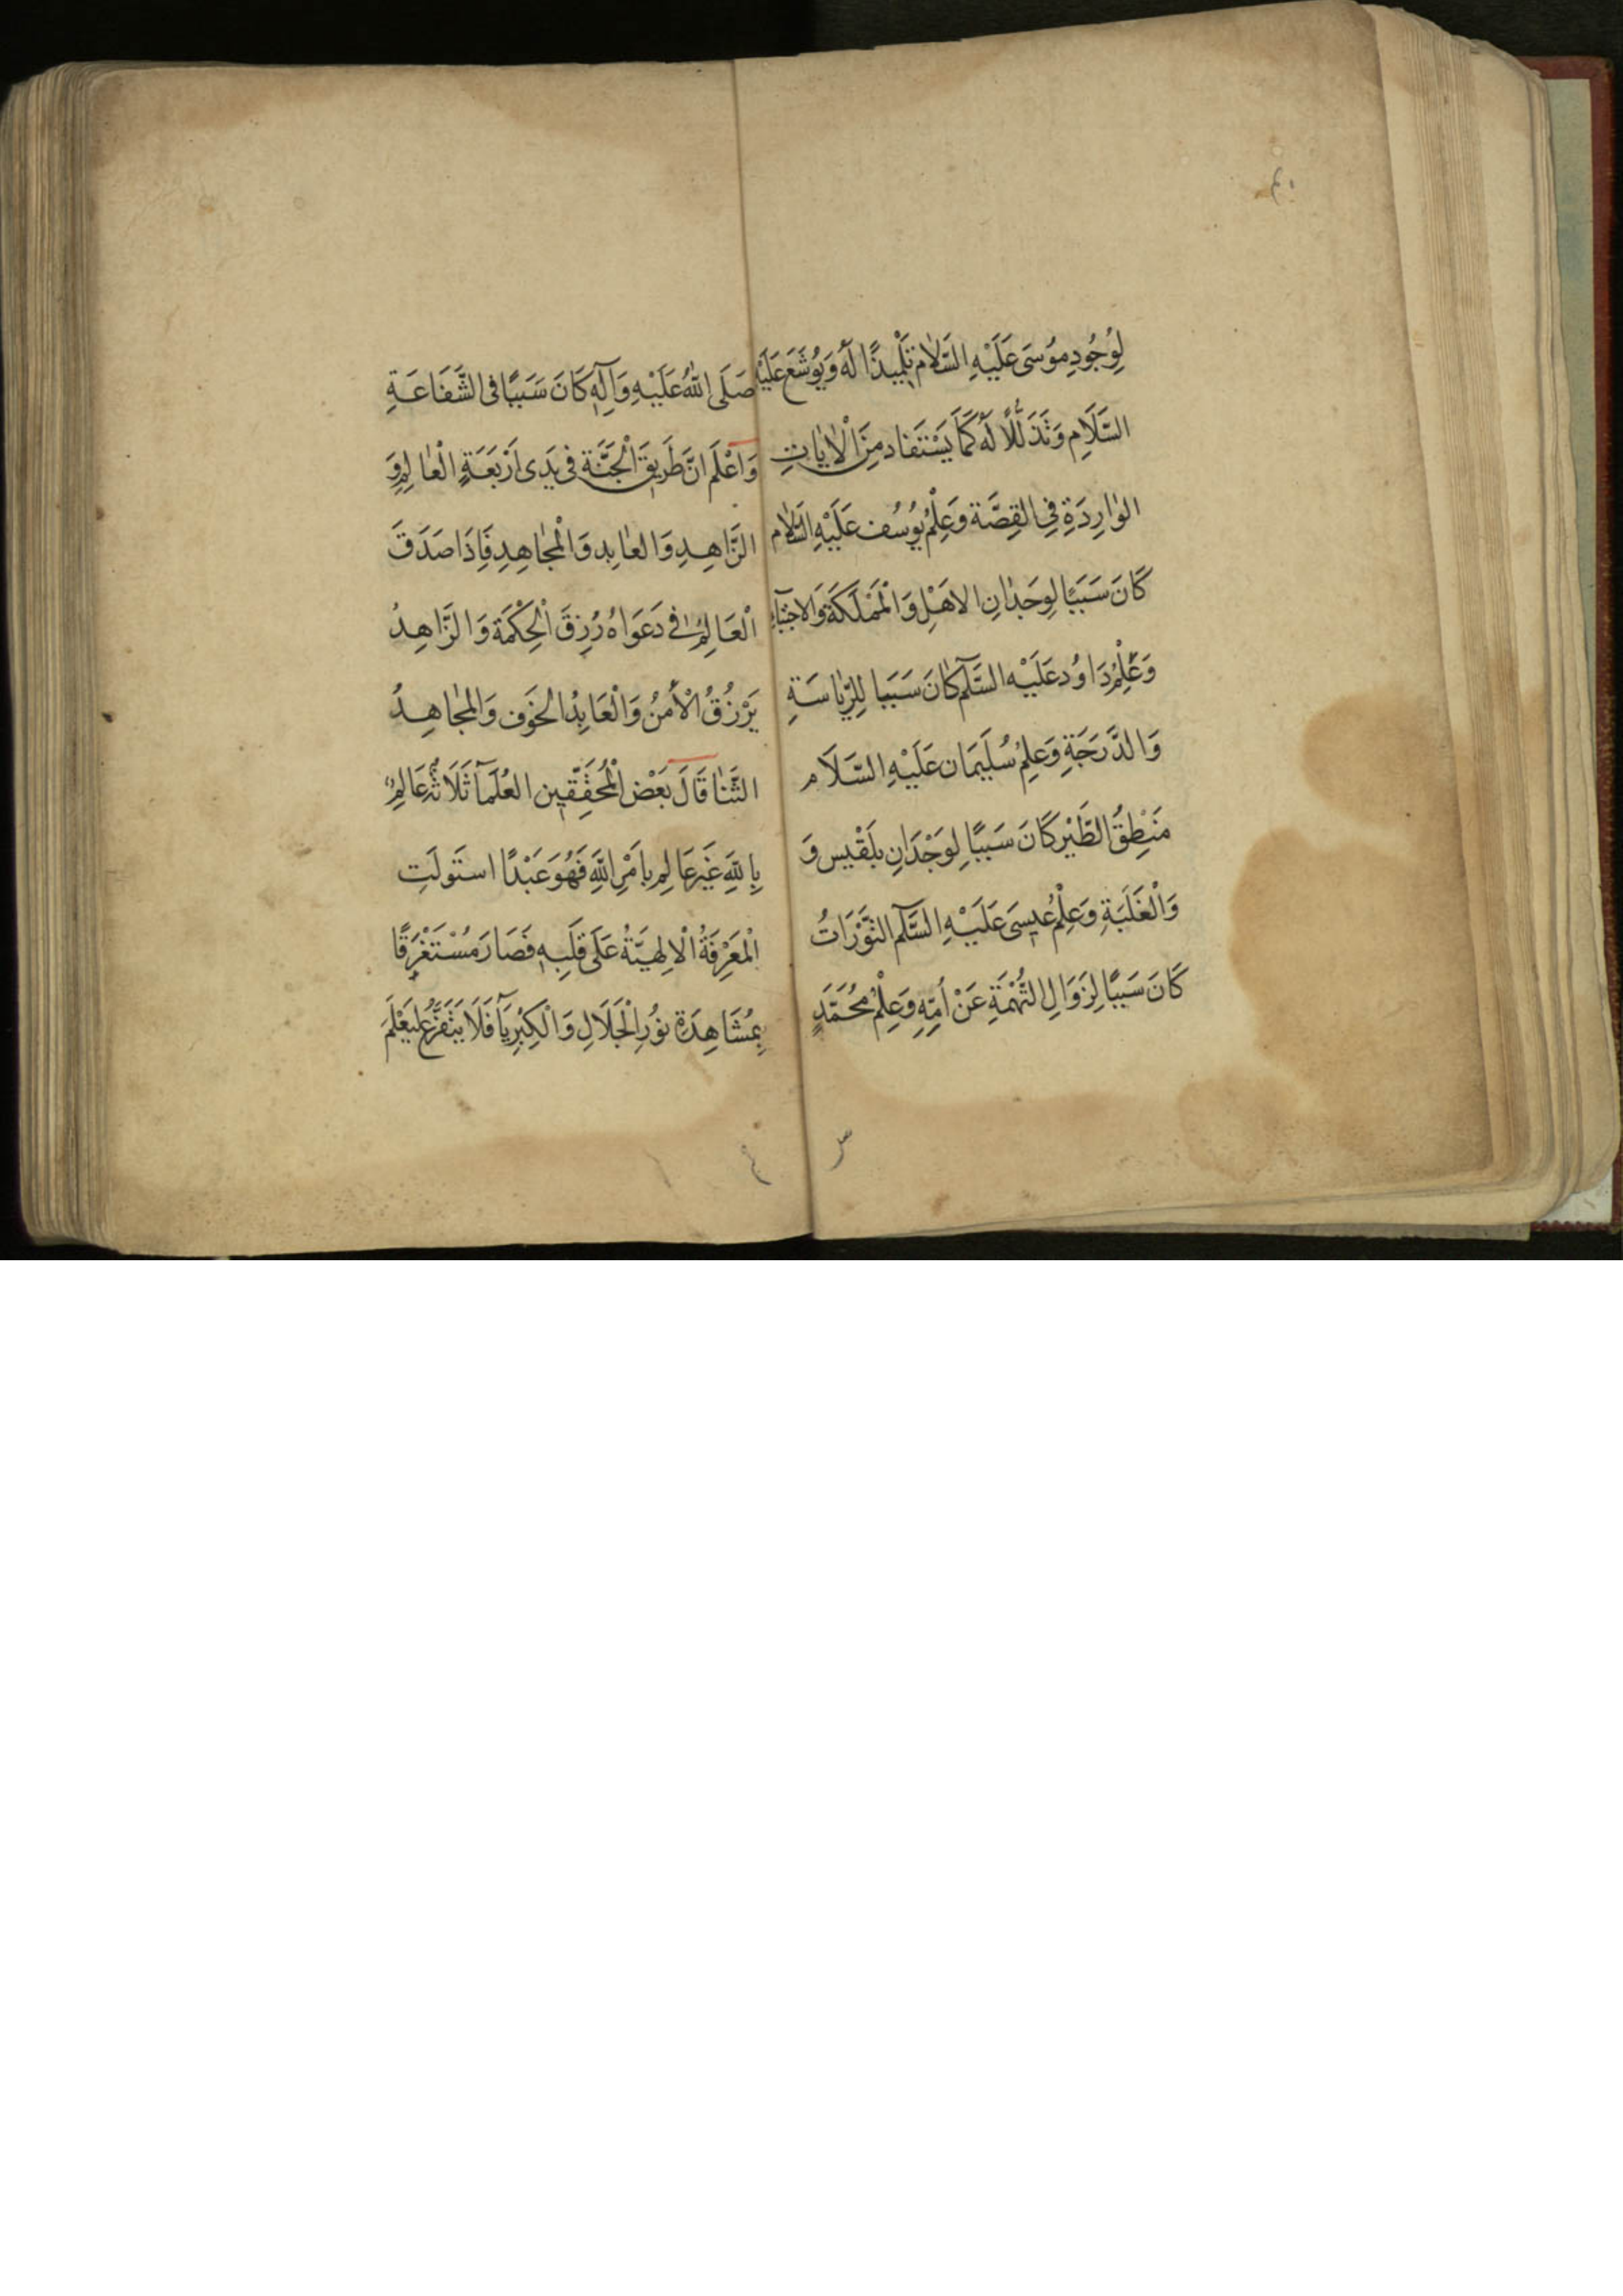 لِوُجُودِ مُوسَى عَلَيْهِ السَّلَام تِلْمِيذًا لَهُ وَيُوشَعَ عَلَيْهِ
السَّلَامِ وَتَذَلُّلًا لَهُ كَمَا يَسْتَفاد مِنَ الْاٰيَاتِ
الوٰارِدَةِ فِي القِصَّة وَعِلْمُ يُوسُف عَلَيْهِ السَّلام
كَانَ سَبَبًا لِوِجَدٰانِ الاهَلِ وَالْمَمْلَكَةِ وَالاجتِبَآءِ
وَعِلْمُ دَاوُد عَلَيْه السَّلَم كٰانَ سَبَبا لِلرِّيٰاسَةِ
وَالدَّرَجَةِ وَعِلمُ سُلَيمَان عَلَيْهِ السَّلَام
مَنْطِقُ الطَّيْر كَانَ سَبَبًا لِوَجْدَانِ بلَقْيس وَ
وَالْغَلَبَةِ وَعِلْمُ عيسَى عَلَيْهِ السَّلَم التَّوْرَاتُ
كَانَ سَبَبًا لِزَوَالِ التُّهْمَةِ عَنْ اُمِّهِ وَعِلْمُ مُحَمَّدٍ
صَلَى اللهُ عَلَيْهِ وَآلِهِ كَانَ سَبَبًا فى الشَّفَاعَةِ
وَاعْلَم انَّ طَرِيقَ الْجَنَّة فى يَدَى اَرْبَعَةٍ الْعٰالِمِ وَ
الزَّاهِدِ وَالعٰابِد وَالْمُجٰاهِدِ فَاِذَا صَدَقَ
الْعَالِمُ فى دَعَوَاهُ رُزِقَ الْحِكْمَة وَالزَّاهِدُ
يَرْزُقُ الْأَمنُ وَالْعَابِدُ الخَوف وَالمُجٰاهِدُ
الثَّنٰا قَالَ بَعْض الْمُحَقِّقِين العُلَمآ ثَلَاثَةٌ عَالِمٌ
بِاللهِ غَيْر عَالِمٍ بِاَمْرِ اللهِ فَهُوَ عَبْدًا استَولَتِ
الْمَعْرِفَةُ الْالِهيَّةُ عَلَى قَلبِهِ فَصَارَ مُسْتَغْرِقًا
بِمُشَاهِدَةِ نُورِ الْجَلَالِ وَالْكِبْرِيَآ فَلَا يَتَفَرَّغُ لِيَعْلَمَ